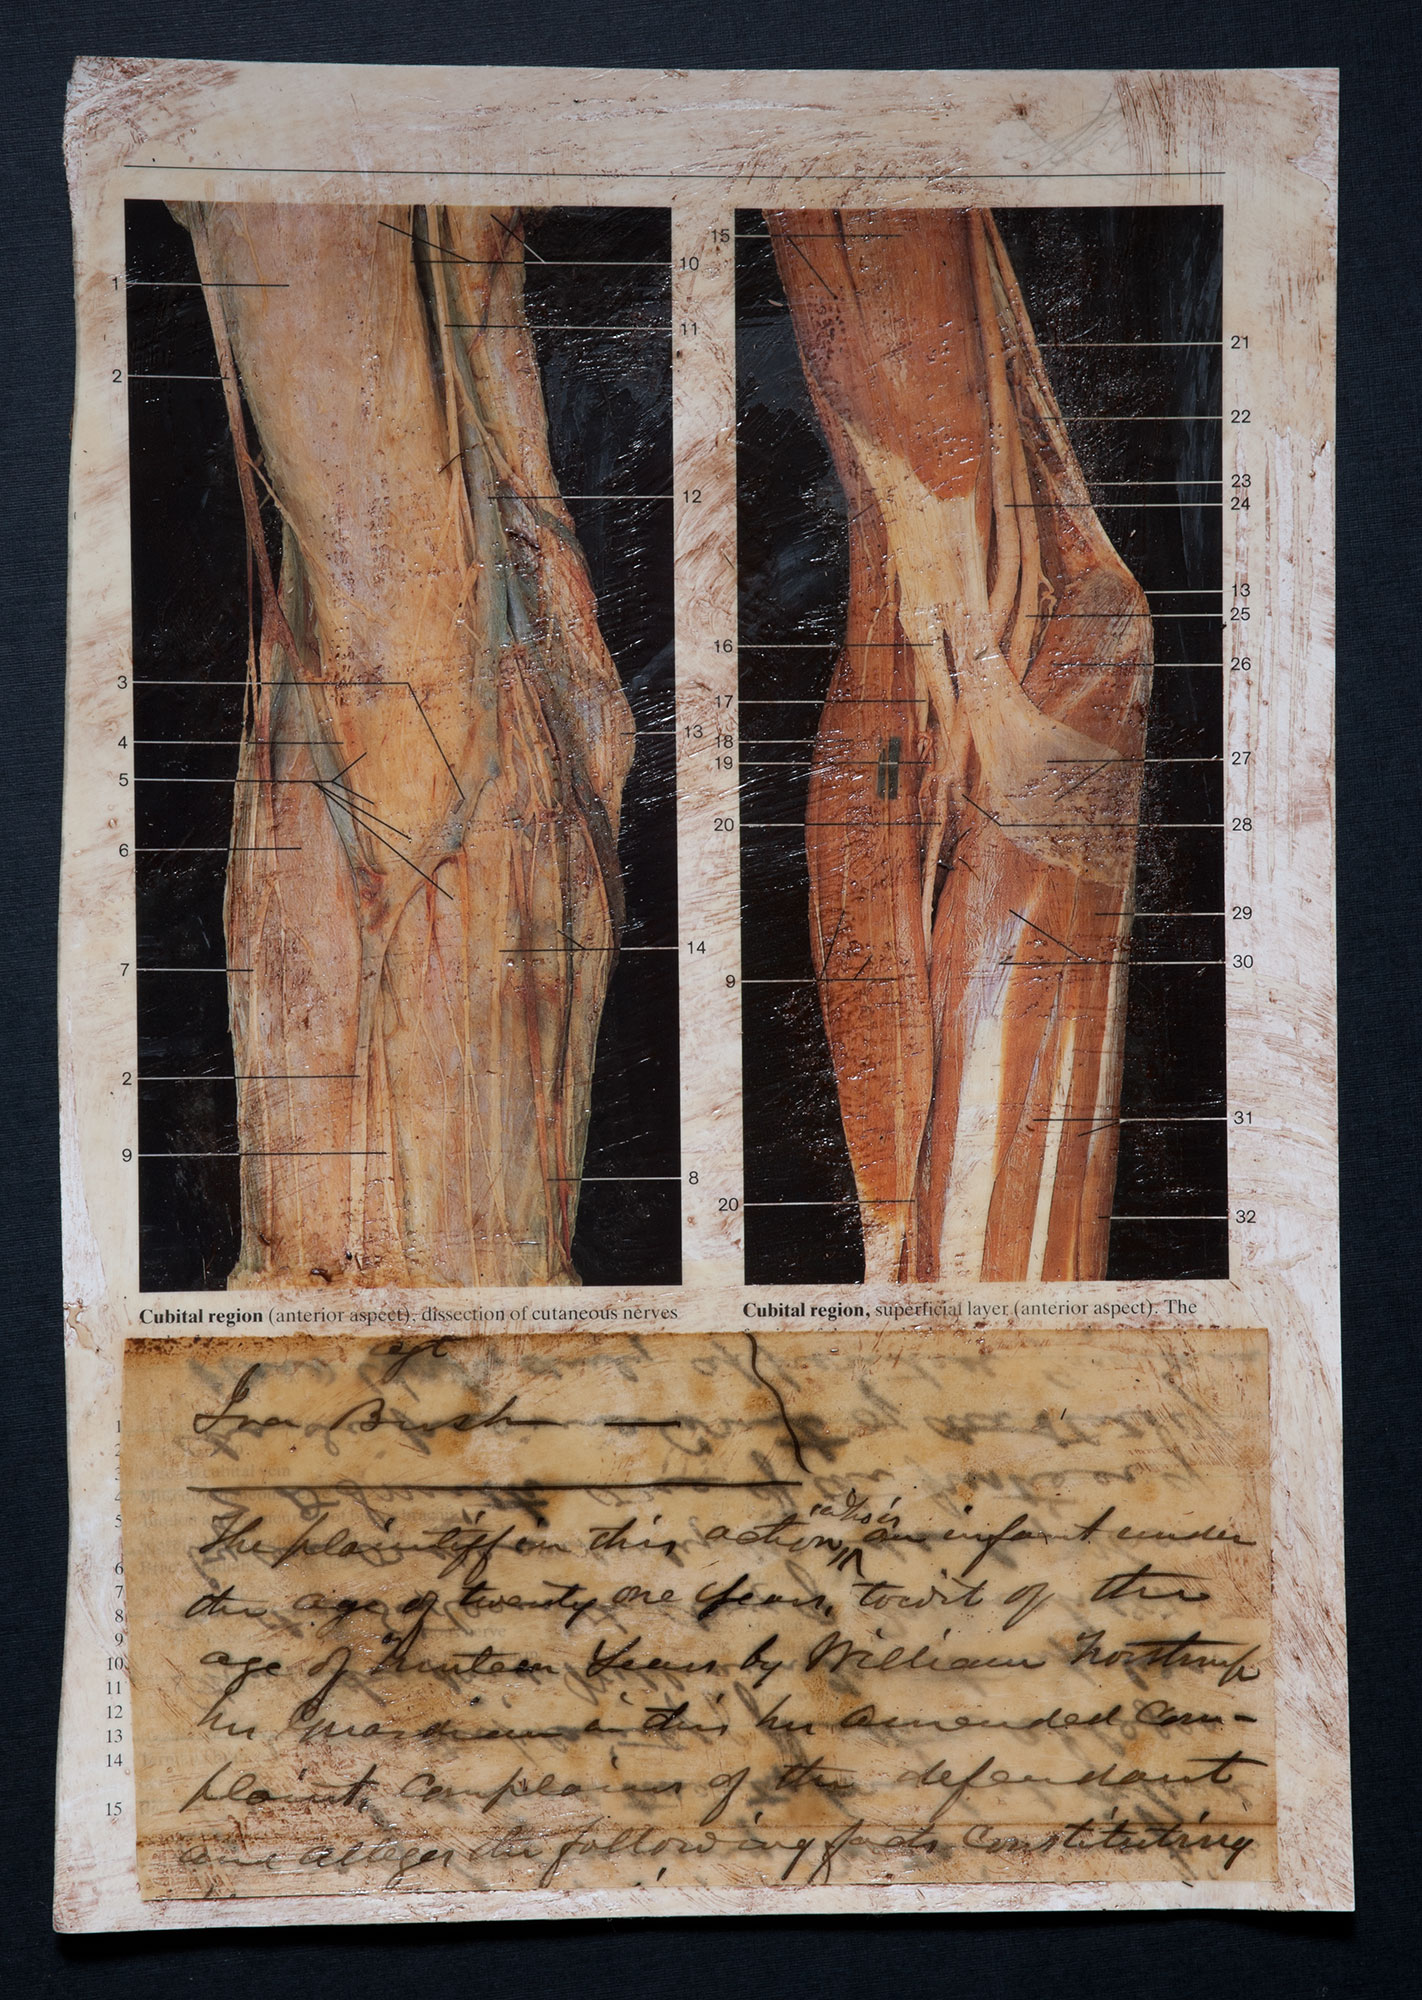 1
2
3
4
5
6
7
2
9
10
11
12
13
14
8
15
16
17
18
19
20
9
20
21
22
23
24
13
25
26
27
28
29
30
31
32
Cubital region (anterior aspect), dissection of cutaneous nerves
Cubital region, superficial layer (anterior aspect). The
agt
Ira Brush
The plaintiff in this action, who is an infant under
the age of twenty one years, towit of the
age of nineteen Years by William
his Guardian in this his amended Com-
plaint, complains of the defendant
and alleges the following facts Constituting
5
6
7
8
9
10
11
12
13
14
15